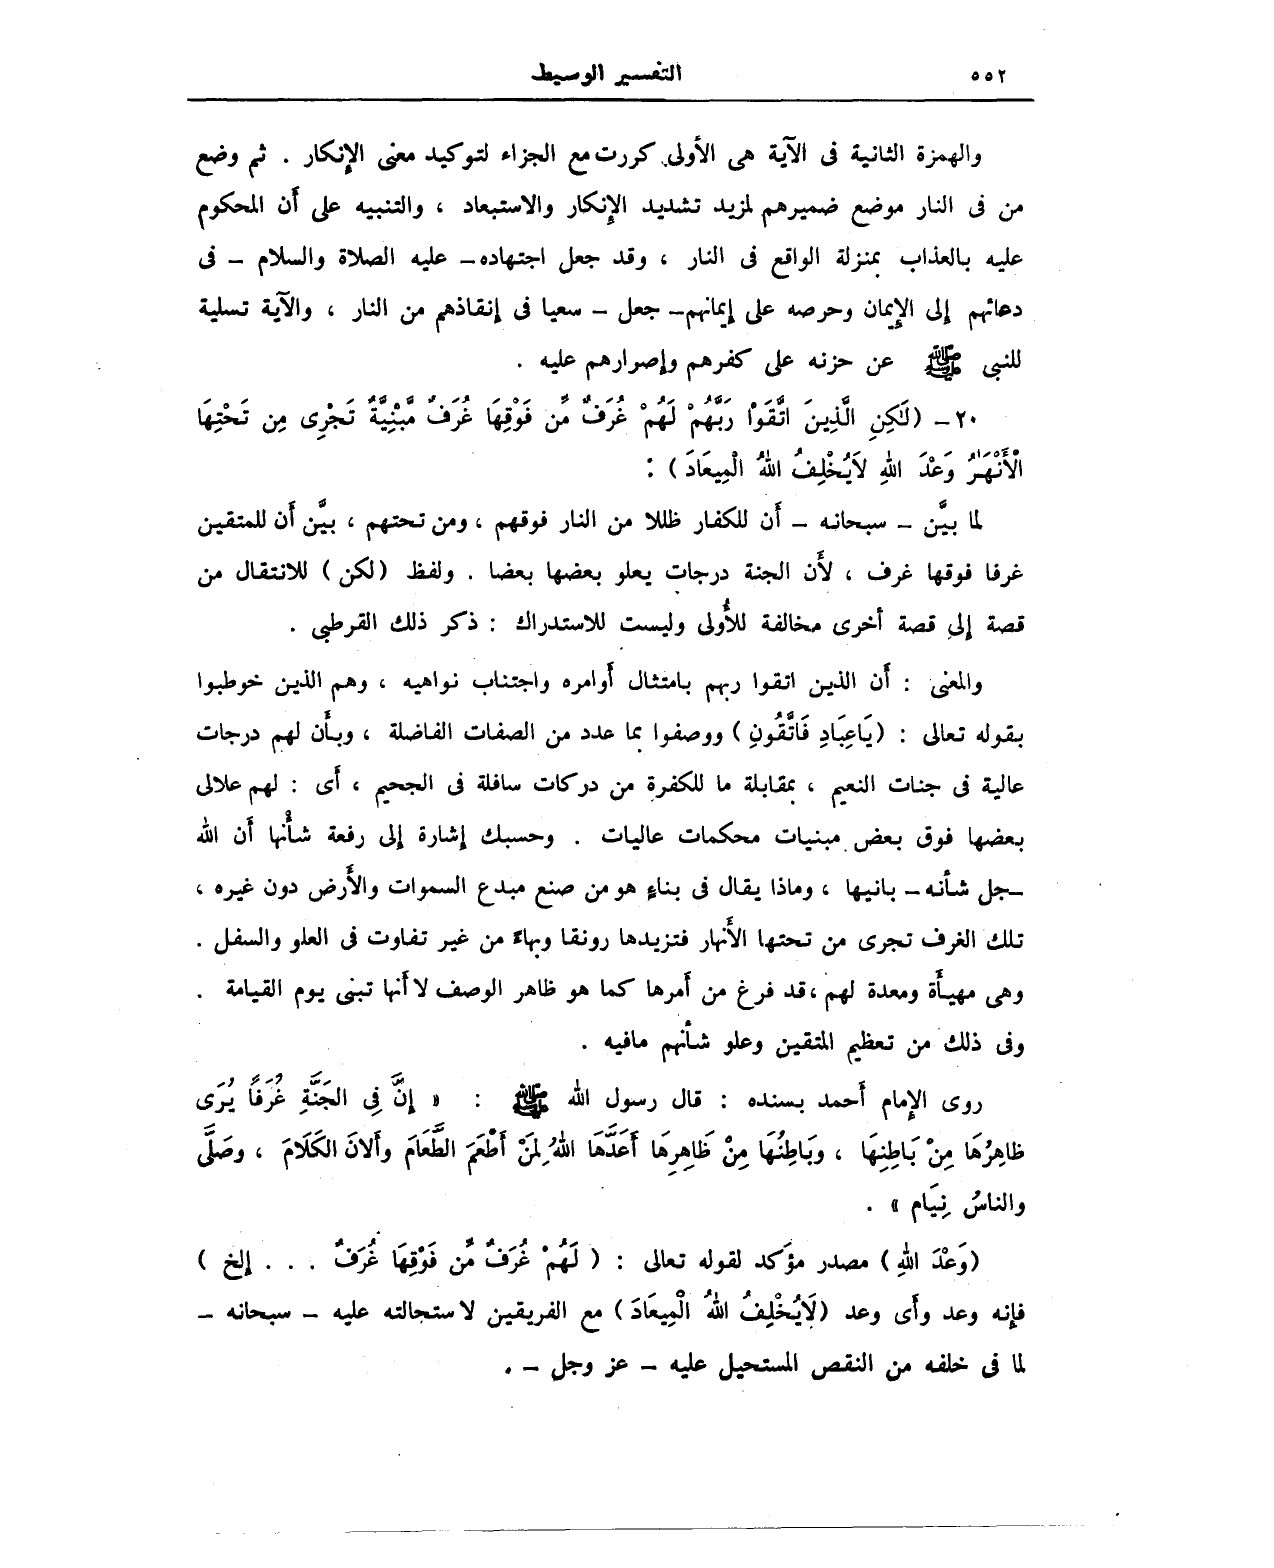 ٥٥٢
التفسير الوسيط
والهمزة الثانية فى الآية هى الأولى كررت مع الجزاء لتوكيد معنى الإنكار . ثم وضع
من فى النار موضع ضميرهم لمزيد تشديد الإنكار والاستبعاد ، والتنبيه على أن المحكوم
عليه بالعذاب بمنزلة الواقع فى النار ، وقد جعل اجتهاده – عليه الصلاة والسلام – فى
دعائهم إلى الإيمان وحرصه على إيمانهم – جعل – سعيا فى إنقاذهم من النار ، والآية تسلية
للنبى ﷺ عن حزنه على كفرهم وإصرارهم عليه .
٢٠ – (لَٰكِنِ الَّذِينَ اتَّقَوْا رَبَّهُمْ لَهُمْ غُرَفٌ مِّن فَوْقِهَا غُرَفٌ مَّبْنِيَّةٌ تَجْرِى مِن تَحْتِهَا
الْأَنْهَٰرُ وَعْدَ اللهِ لَايُخْلِفُ اللهُ الْمِيعَادَ) :
لما بيَّن – سبحانه – أن للكفار ظللا من النار فوقهم ، ومن تحتهم ، بيَّن أن للمتقين
غرفا فوقها غرف ، لأن الجنة درجات يعلو بعضها بعضا . ولفظ (لكن) للانتقال من
قصة إلى قصة أخرى مخالفة للأُولى وليست للاستدراك : ذكر ذلك القرطبى .
والمعنى : أن الذين اتقوا ربهم بامتثال أوامره واجتناب نواهيه ، وهم الذين خوطبوا
بقوله تعالى : (يَاعِبَادِ فَاتَّقُونِ) ووصفوا بما عدد من الصفات الفاضلة ، وبأن لهم درجات
عالية فى جنات النعيم ، بمقابلة ما للكفرة من دركات سافلة فى الجحيم ، أى : لهم علالى
بعضها فوق بعض مبنيات محكمات عاليات . وحسبك إشارة إلى رفعة شأنها أن الله
– جل شأنه – بانيها ، وماذا يقال فى بناءٍ هو من صنع مبدع السموات والأرض دون غيره ،
تلك الغرف تجرى من تحتها الأنهار فتزيدها رونقا وبهاءً من غير تفاوت فى العلو والسفل .
وهى مهيأة ومعدة لهم ، قد فرغ من أمرها كما هو ظاهر الوصف لا أنها تبنى يوم القيامة .
وفى ذلك من تعظيم المتقين وعلو شأنهم مافيه .
روى الإمام أحمد بسنده : قال رسول الله ﷺ : « إِنَّ فِى الجَنَّةِ غُرَفًا يُرَى
ظاهِرُهَا مِنْ بَاطِنِهَا ، وبَاطِنُهَا مِنْ ظَاهِرِهَا أَعَدَّهَا اللهُ لِمَنْ أَطْعَمَ الطَّعَامَ وألانَ الكَلَامَ ، وصَلَّى
والناسُ نِيَام » .
(وَعْدَ اللهِ) مصدر مؤكد لقوله تعالى : ( لَهُمْ غُرَفٌ مِّن فَوْقِهَا غُرَفٌ . . . إلخ )
فإنه وعد وأى وعد (لَايُخْلِفُ اللهُ الْمِيعَادَ) مع الفريقين لاستحالته عليه – سبحانه –
لما فى خلفه من النقص المستحيل عليه – عز وجل – .